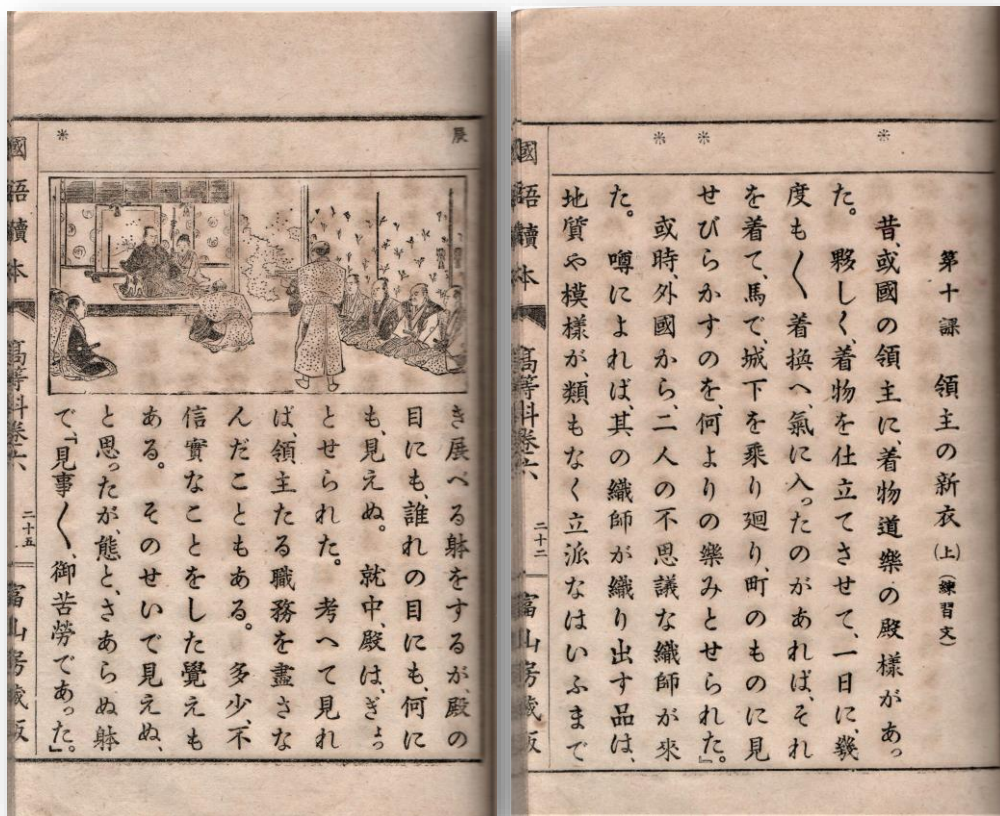 第十課　領主の新衣(上)(練習文)
＊
昔、或國の領主に、着物道樂の殿樣があっ
た。　夥しく、着物を仕立てさせて、一日に、幾
度も〳〵着換へ、氣に入ったのがあれば、それ
を着て、馬で、城下を乘り廻り、町のものに見
＊
せびらかすのを、何よりの樂みとせられた。』
＊
或時、外國から、二人の不思議な織師が來
た。　噂によれば、其の織師が織り出す品は、
地質や模樣が、類もなく立派なはいふまで
國語讀本　高等科卷六　二十二　冨山房藏版
展
き展べる躰をするが、殿の
目にも、誰れの目にも、何に
も、見えぬ。　就中、殿は、ぎょっ
とせられた。　考へて見れ
ば、領主たる職務を盡さな
んだこともある。　多少、不
信實なことをした覺えも
ある。　そのせいで見えぬ、
と思ったが、態と、さあらぬ躰
＊
で、『見事〳〵、御苦勞であった。』
國語讀本　高等科卷六　二十五　冨山房藏版